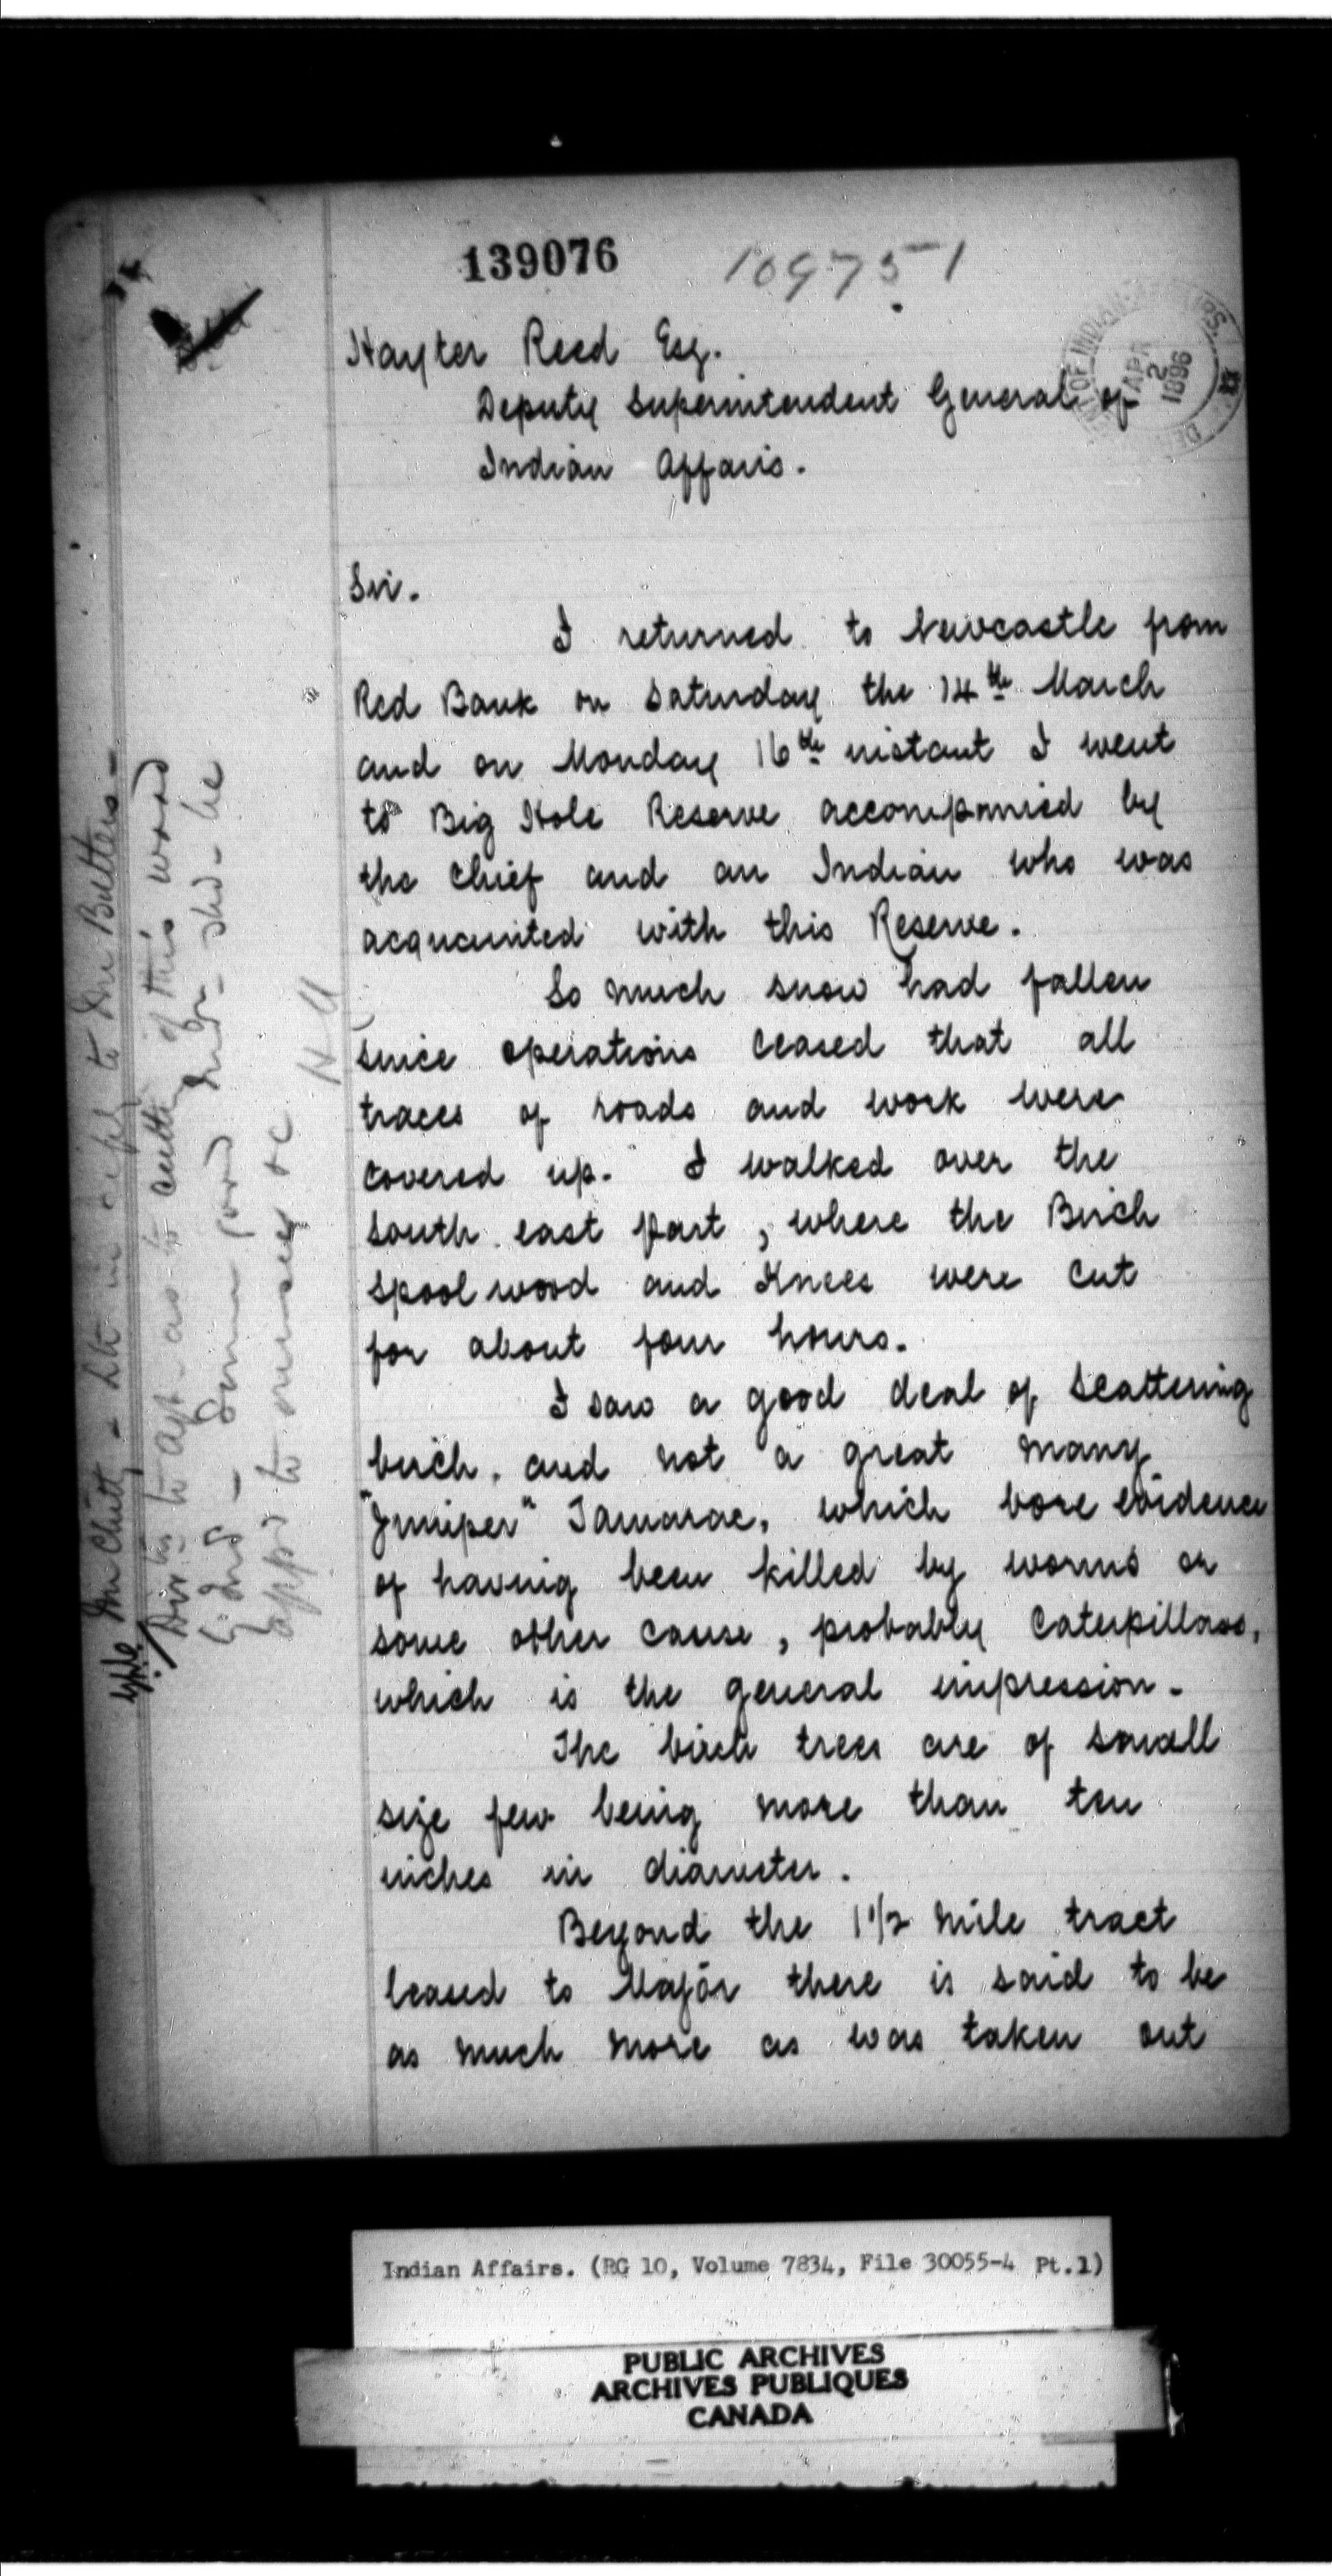 139076
109751
DEPT OF INDIAN AFFAIRS
APR 2 1896
Hayter Reed Esq.
Deputy Superintendent General of
Indian Affairs.
Sir.
I returned to Newcastle from
Red Bank on Saturday the 14th March
and on Monday 16th instant I went
to Big Hole Reserve accompanied by
the Chief and an Indian who was
acquainted with this Reserve.
So much snow had fallen
since operations ceased that all
traces of roads and work were
covered up. I walked over the
south east part, where the Birch
spool wood and Knees were cut
for about four hours.
I saw a good deal of scattering
birch, and not a great many
"Juniper" Tamarac, which bore evidence
of having been killed by worms or
some other cause, probably Caterpillars,
which is the general impression.
The birch trees are of small
size few being more than ten
inches in diameter.
Beyond the 1 1/2 mile tract
leased to Major there is said to be
as much more as was taken out
Mr Chitty - in reply to
to agt - as to cutting of this wood
by Ind - shd. be
appd to oversee &c
Indian Affairs. (RG 10, Volume 7834, File 30055-4 Pt.1)
PUBLIC ARCHIVES
ARCHIVES PUBLIQUES
CANADA